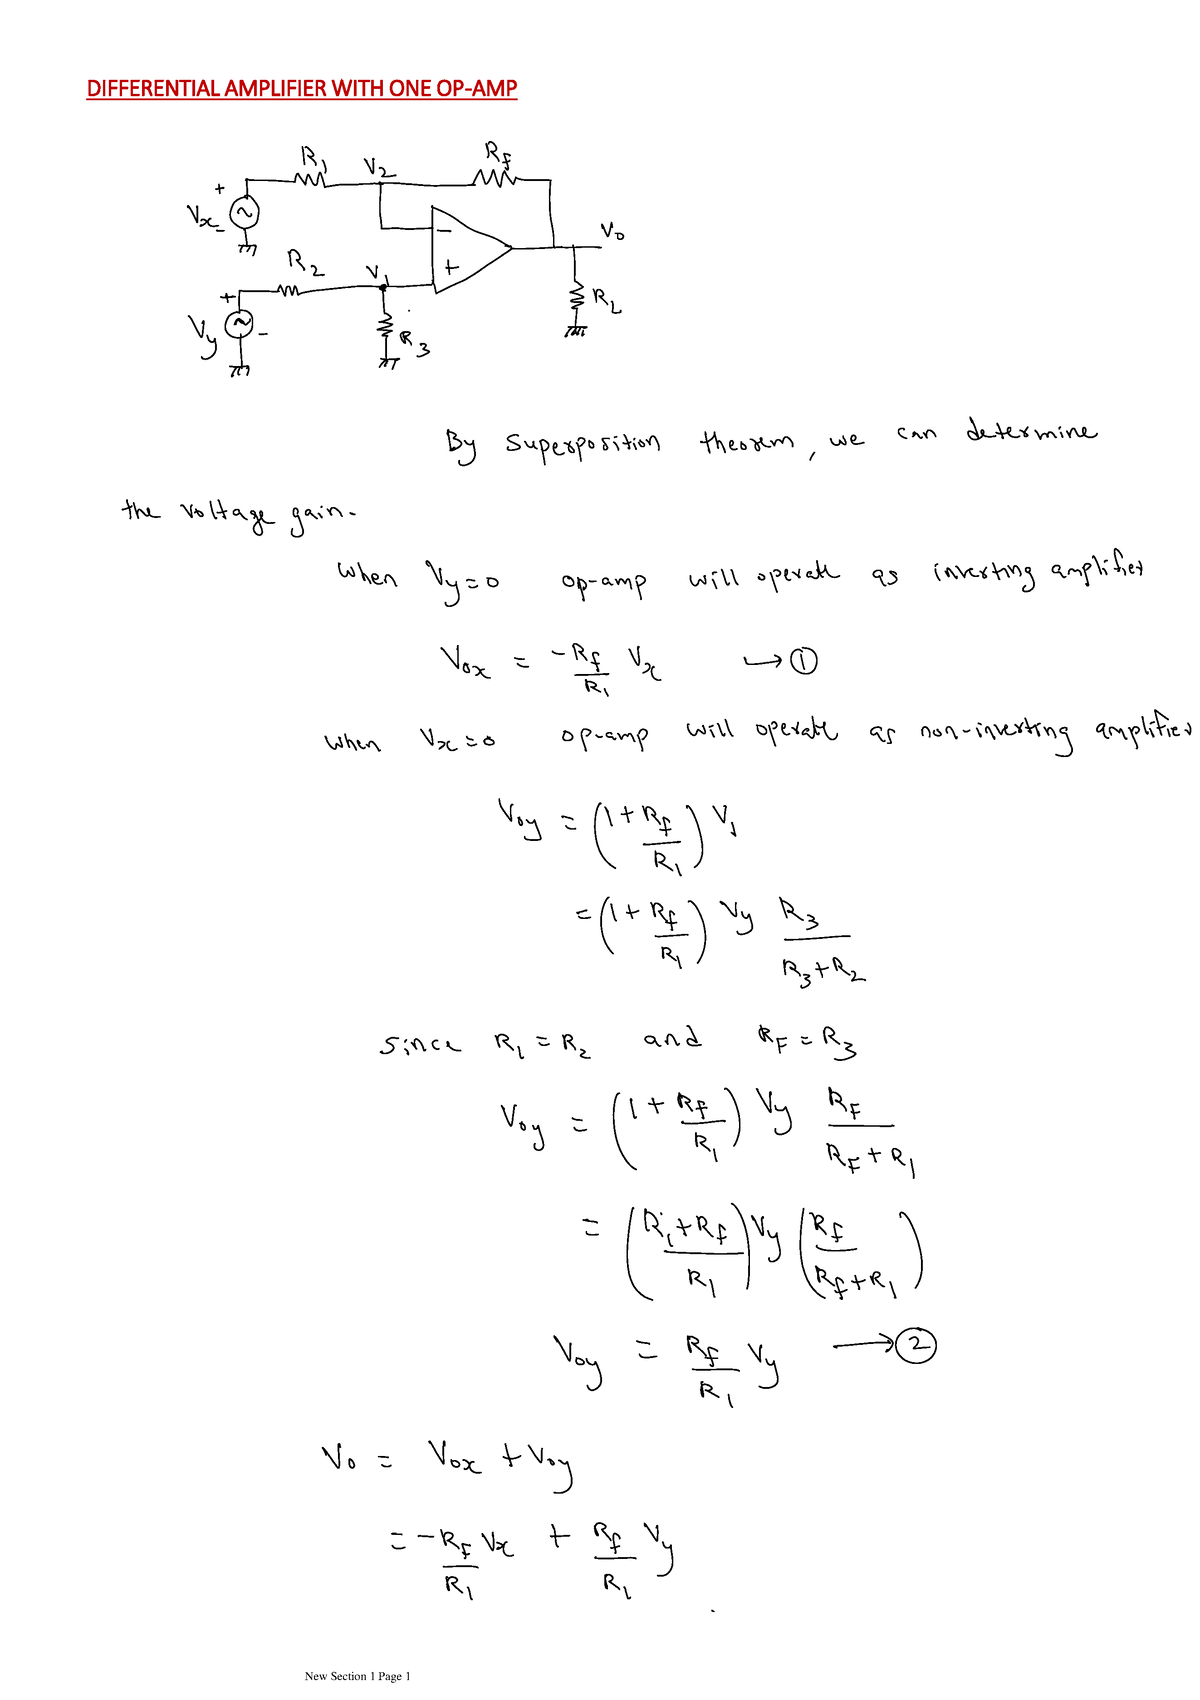 DIFFERENTIAL AMPLIFIER WITH ONE OP-AMP
R1 V2 Rf
+ Vx - ~
- + Vo
R2 V1
+ Vy - ~
R3 RL
By superposition theorem, we can determine
the voltage gain.
when Vy=0 op-amp will operate as inverting amplifier
Vox = -Rf/R1 Vx → ①
when Vx=0 op-amp will operate as non-inverting amplifier
Voy = (1+Rf/R1) V1
= (1+Rf/R1) Vy R3/(R3+R2)
since R1 = R2 and RF = R3
Voy = (1+Rf/R1) Vy RF/(RF+R1)
= ((R1+Rf)/R1) Vy (Rf/(Rf+R1))
Voy = Rf/R1 Vy → ②
Vo = Vox + Voy
= -Rf/R1 Vx + Rf/R1 Vy
New Section 1 Page 1